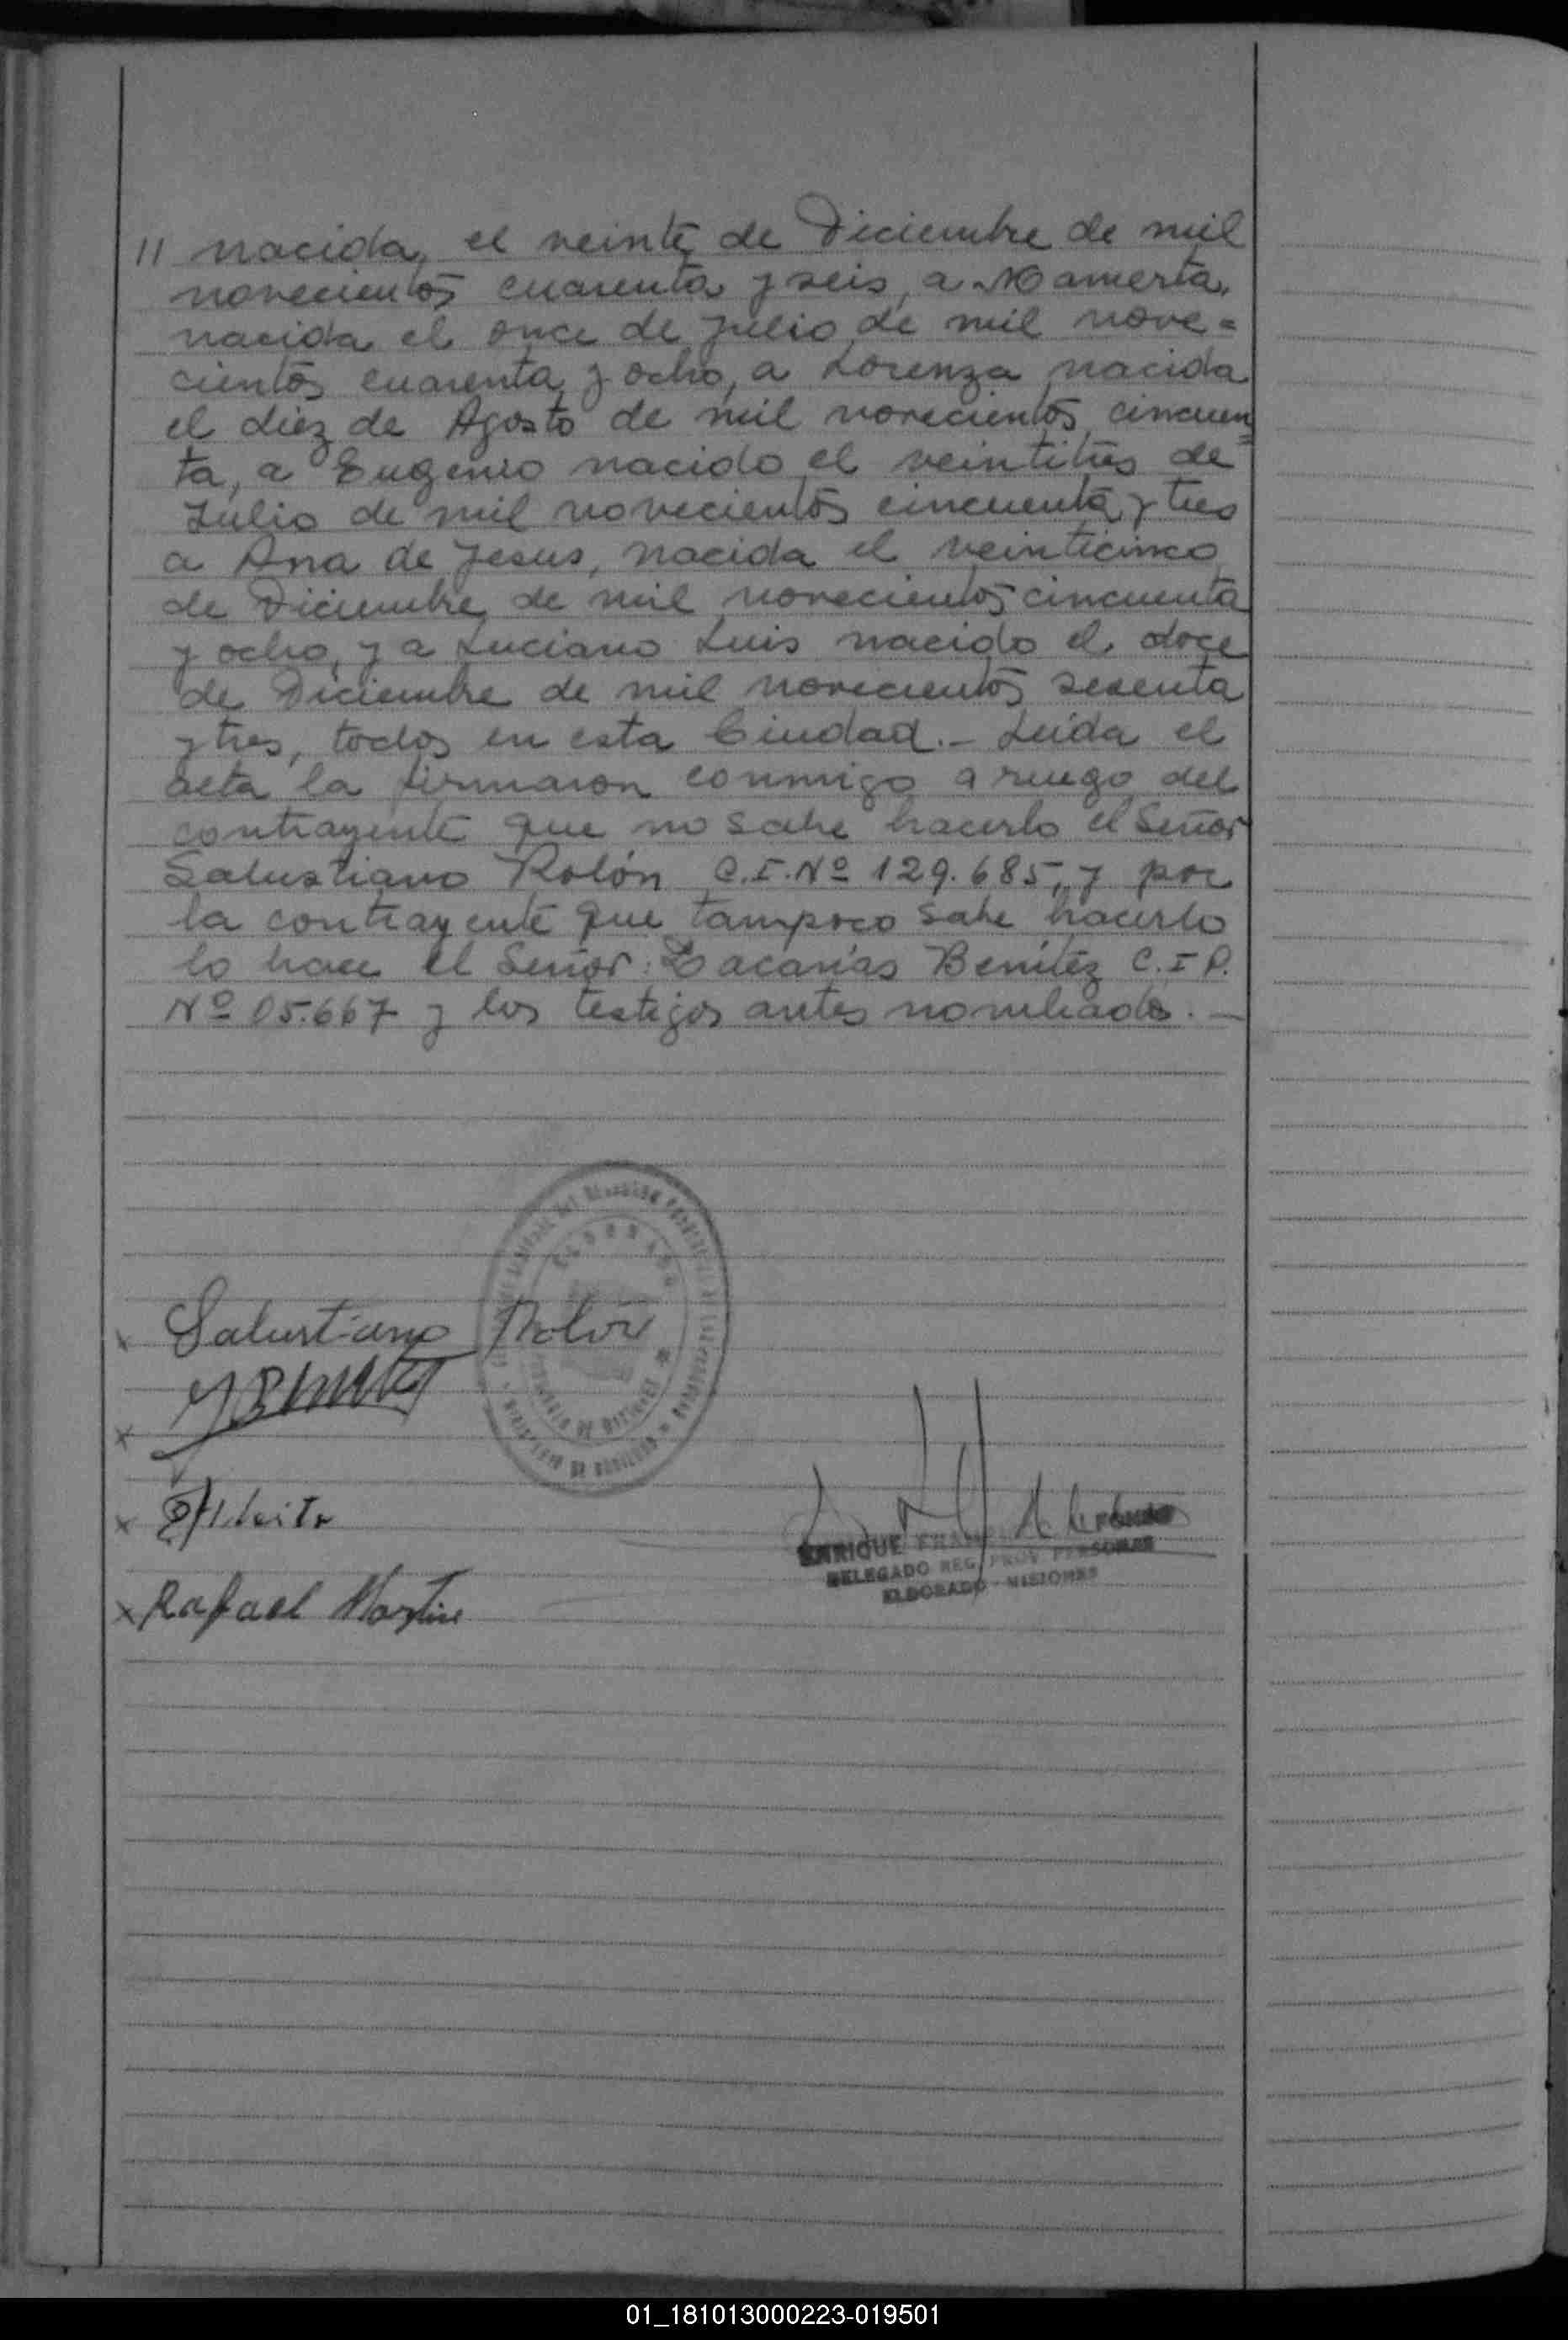 11 nacida, el veinte de Diciembre de mil
novecientos cuarenta y seis, a Mamerta,
nacida el once de Julio de mil nove=
cientos cuarenta y ocho, a Lorenza nacida
el diez de Agosto de mil novecientos cincuen=
ta, a Eugenio nacido el veintitres de
Julio de mil novecientos cincuenta y tres
a Ana de Jesus, nacida el veinticinco
de Diciembre de mil novecientos cincuenta
y ocho, y a Luciano Luis nacido el doce
de Diciembre de mil novecientos sesenta
y tres, todos en esta Ciudad.- Leida el
acta la firmaron conmigo a ruego del
contrayente que no sabe hacerlo el Señor
Salustiano Rolón C.I.Nº 129.685, y por
la contrayente que tampoco sabe hacerlo
lo hace el Señor: Zacarías Benítez C.I.P.
Nº 05.667 y los testigos antes nombrados.-
ELDORADO
x Salustiano Rolón
x
x
x Rafael Martine
ENRIQUE
DELEGADO REG. PROV. PERSONAS
ELDORADO - MISIONES
01_181013000223-019501